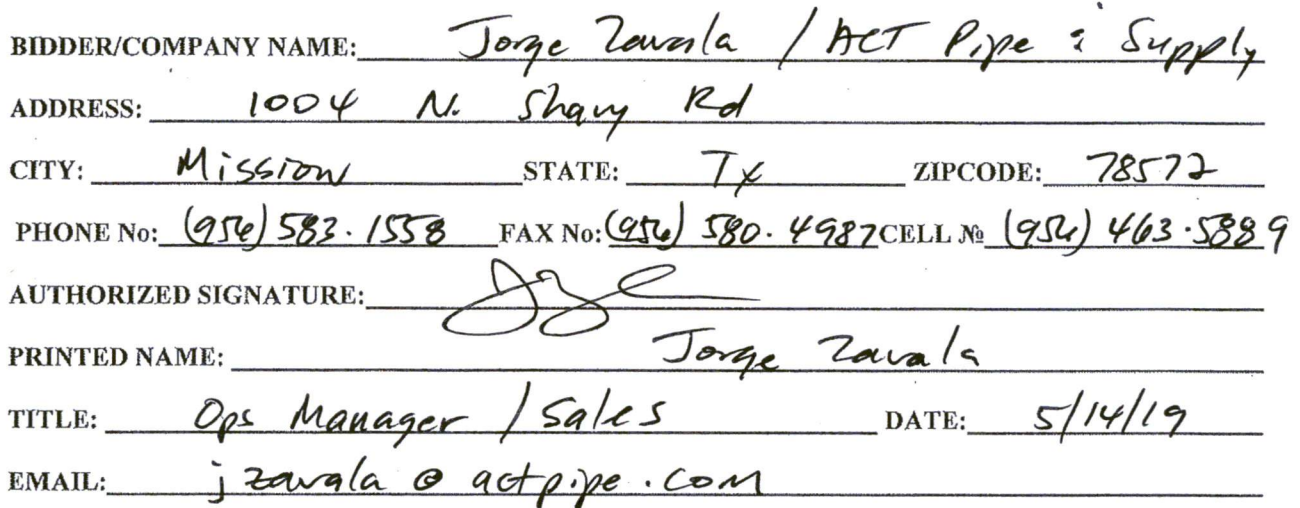 BIDDER/COMPANY NAME: Jorge Zavala / ACT Pipe & Supply
ADDRESS: 1004 N. Shary Rd
CITY: Mission STATE: Tx ZIPCODE: 78572
PHONE No: (956) 583.1558 FAX No: (956) 580.4987 CELL № (956) 463.5889
AUTHORIZED SIGNATURE:
PRINTED NAME: Jorge Zavala
TITLE: Ops Manager / Sales DATE: 5/14/19
EMAIL: jzavala @ actpipe.com